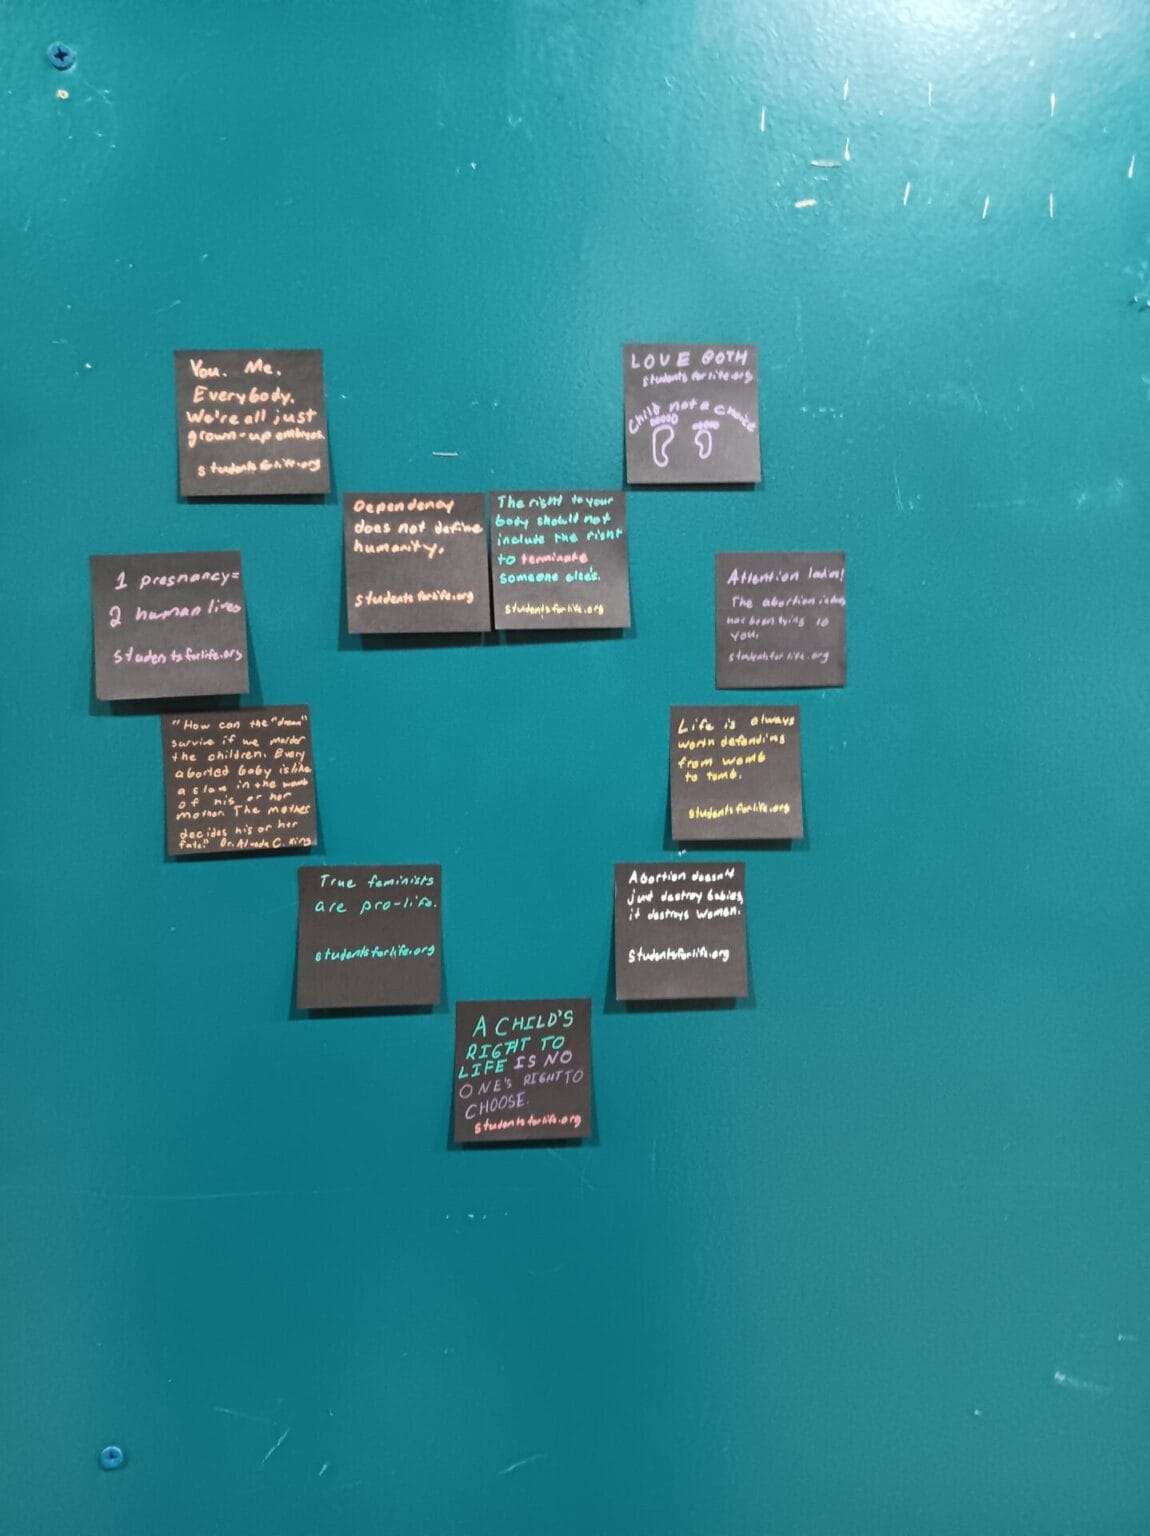 You. Me.
Everybody.
We're all just
grown-up embryos.
studentsforlife.org
LOVE BOTH
studentsforlife.org
Child not a choice
Dependency
does not define
humanity.
studentsforlife.org
The right to your
body should not
include the right
to terminate
someone else's.
studentsforlife.org
1 pregnancy=
2 human lives
studentsforlife.org
Attention ladies!
The abortion
has been lying to
you.
studentsforlife.org
"How can the "dream"
survive if we murder
the children. Every
aborted baby is like
a slave in the womb
of his or her
mother. The mother
decides his or her
fate." Dr. Alveda C. King
Life is always
worth defending
from womb
to tomb.
studentsforlife.org
True feminists
are pro-life.
studentsforlife.org
Abortion doesn't
just destroy babies,
it destroys women.
studentsforlife.org
A CHILD'S
RIGHT TO
LIFE IS NO
ONE'S RIGHT TO
CHOOSE.
studentsforlife.org